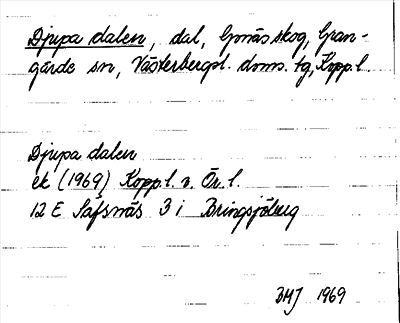 Djupa dalen, dal, Gonäs skog, Gran-
gärde sn, Västerbergsl. doms. tg, Kopp. l.
Djupa dalen
ek (1969) Kopp. l. o. Ör. l.
12 E Säfsnäs 3 i Bringsjöberg
BHJ 1969